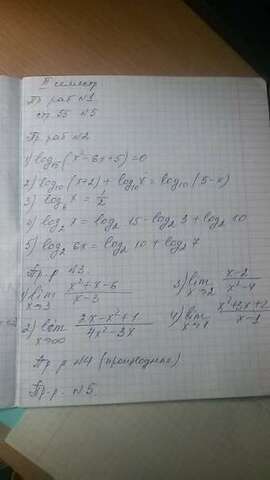 II семестр
Пр. раб №1
стр. 75 №5
Пр раб №2
1) log₁₅(x²-6x+5)=0
2) log₁₀(x+2)+log₁₀x=log₁₀(5-x)
3) log₆x=1/2
4) log₂x=log₂15-log₂3+log₂10
5) log₂6x=log₂10+log₂7
Пр.р №3
1) lim x→3 x²+x-6/x-3
3) lim x→2 x-2/x²-4
2) lim x→∞ 2x-x²+1/4x²-3x
4) lim
Пр. р №4 (производные)
Пр.р. №5